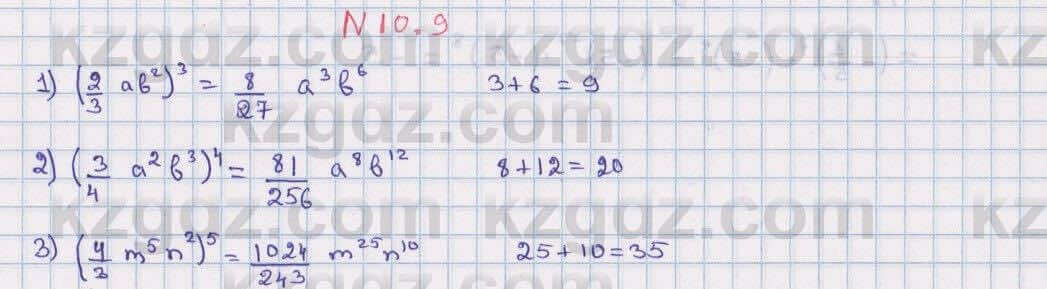 N 10.9
1) (2/3 ab²)³ = 8/27 a³b⁶ 3+6=9
2) (3/4 a²b³)⁴ = 81/256 a⁸b¹² 8+12=20
3) (4/3 m⁵n²)⁵ = 1024/243 m²⁵n¹⁰ 25+10=35
kzgdz.com
kzgdz.com
kzgdz.com
kzgdz.com